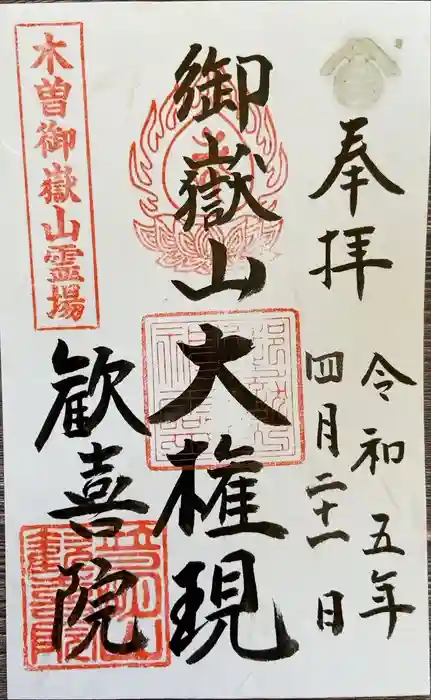 奉拝
令和五年
四月二十一日
御嶽山大権現
木曽御嶽山霊場
歓喜院